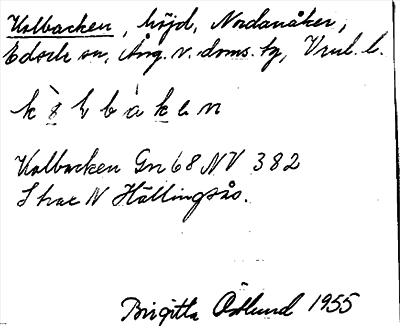 Kolbacken, höjd, Nordanåker,
Edsele sn, Ång. v. doms. tg, Vnrl. l.
Kolbacken Gn 68 NV 382
1 hae N Hällingsås.
Birgitta Ödlund 1955